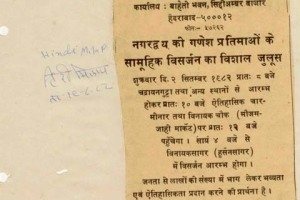 कार्यालय : बाहेती भवन, सिद्दीअम्बर बाजार
हैदराबाद-५०००१२
नगरद्वय की गणेश प्रतिमाओं के
सामूहिक विसर्जन का विशाल जुलूस
शुक्रवार दि. २ सितम्बर १९८२ प्रातः ८ बजे
तथा अन्य स्थानों से आरम्भ
होकर प्रातः १० बजे ऐतिहासिक चार-
मीनार तथा विनायक चौक (मौजम-
जाही मार्केट) पर प्रातः
पहुंचेगा । सायं ४ बजे से
विनायकसागर (हुसेनसागर)
में विसर्जन आरम्भ होगा ।
जनता से लाखों की संख्या में भाग लेकर भव्यता
एवं ऐतिहासिकता प्रदान करने की प्रार्थना है ।
Hindi Milap
हिन्दी मिलाप